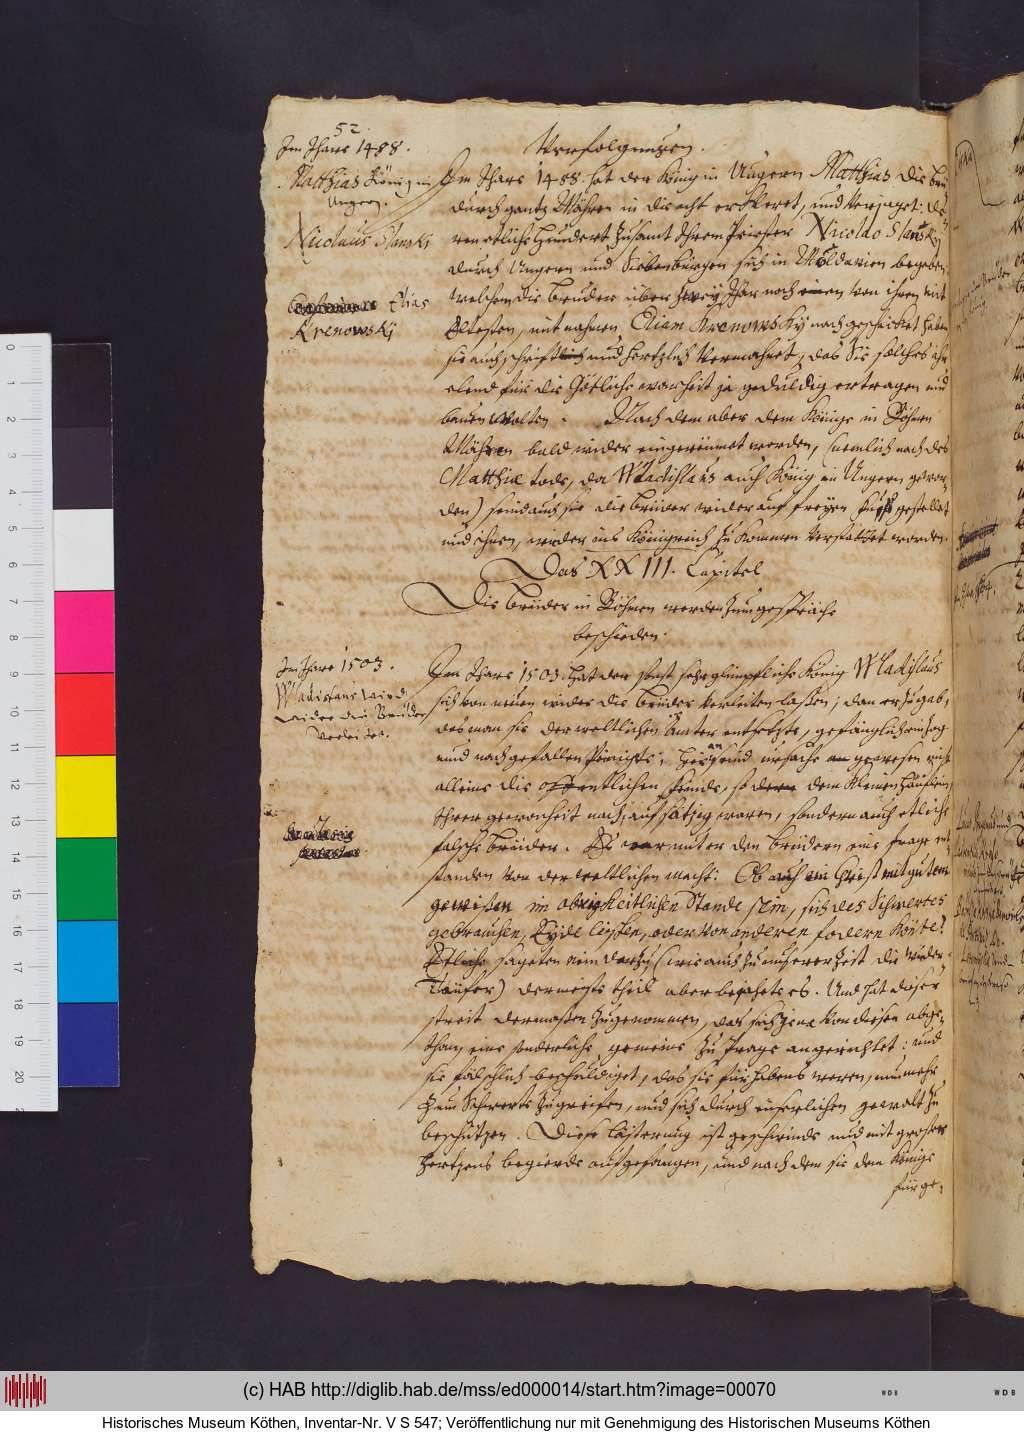 52.
Verfolgungen.
Im Jhare 1488.
Matthias König in
Ungern.
Nicolaus Slanski
Elias
Krenowskj
Im Jhare 1488. hat der König in Ungern Matthias die Brü
durch gantz Mähren in die acht erkleret, und verjaget: de
ren etliche hundert zusamt ihrem Priester Nicolao Slansky
durch Ungern und Siebenbürgen sich in Moldavien begeben.
welchen die Brüder über zwey Jhar noch einen von ihren mit
Eltesten, mit nahmen Eliam Krenowsky nachgeschicket haben
sie auch schriftlich und hertzlich vermahnet, das Sie solches ihr
elend für die Götliche warheit ja geduldig ertragen und
wolten. Nach dem aber dem Könige in Böhmen
Mähren bald wider eingereumet worden, (nemlich nach des
Matthiæ tode, da Wladislaus auch König in Ungern gewor-
den) seind auch sie die Brüder wider auf freyen fuss gestellet
und ihnen, wider ins Königreich zu kommen verstattet worden.
Das XXIII. Capitel
Die Brüder in Böhmen werden zum gespräche
bescheiden.
Im Jhare 1503.
Wladislaus wird
wider die Brüder
verleitet.
Im Jhare 1503. hat der sonst sehr glimpfliche König Wladislaus
sich von neuen wider die Brüder verleiten lassen; dan er zugab,
das man sie der weltlichen Ämter entsetzte, gefänglich einzog
und nach gefallen peinigte; hieran seind ursache gewesen nicht
alleine die offentlichen feinde, so dem kleinen häuflein,
ihrer gewonheit nach, aufsätzig waren, sondern auch etliche
falsche Brüder. Es war unter den brüdern eine frage ent
standen von der weltlichen macht: Ob auch ein Christ mit gutem
gewißen im obrigkeitlichen Stande sein, sich des Schwertes
gebrauchen, Eyde leisten, oder von anderen fodern könte?
Etliche sageten nein darzu (wie auch zu unserer Zeit die Wider-
Täufer) der meiste theil aber bejahete es. Und hat dieser
streit dermaßen zugenommen, das sich jene von diesen abge-
than, eine sonderliche gemeine zu Prage angerichtet: und
sie fälschlich beschuldiget, das sie fürhabens weren, nunmehr
zum Schwerte zugreifen, und sich durch euserlichen gewalt zu
beschützen. Diese lästerung ist geschwinde und mit grosser
hertzens begierde aufgefangen, und nach dem sie dem Könige
fürge-
(c) HAB http://diglib.hab.de/mss/ed000014/start.htm?image=00070
Historisches Museum Köthen, Inventar-Nr. V S 547; Veröffentlichung nur mit Genehmigung des Historischen Museums Köthen